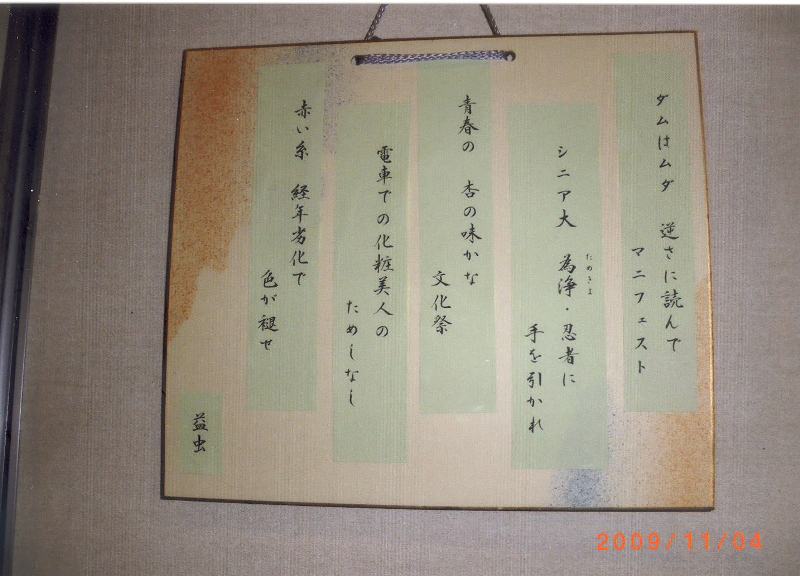 ダムはムダ 逆さに読んで
マニフェスト
シニア大 為浄・忍者に
ためきよ
手を引かれ
青春の 杏の味かな
文化祭
電車での化粧美人の
ためしなし
赤い糸 経年劣化で
色が褪せ
益虫
2009/11/04